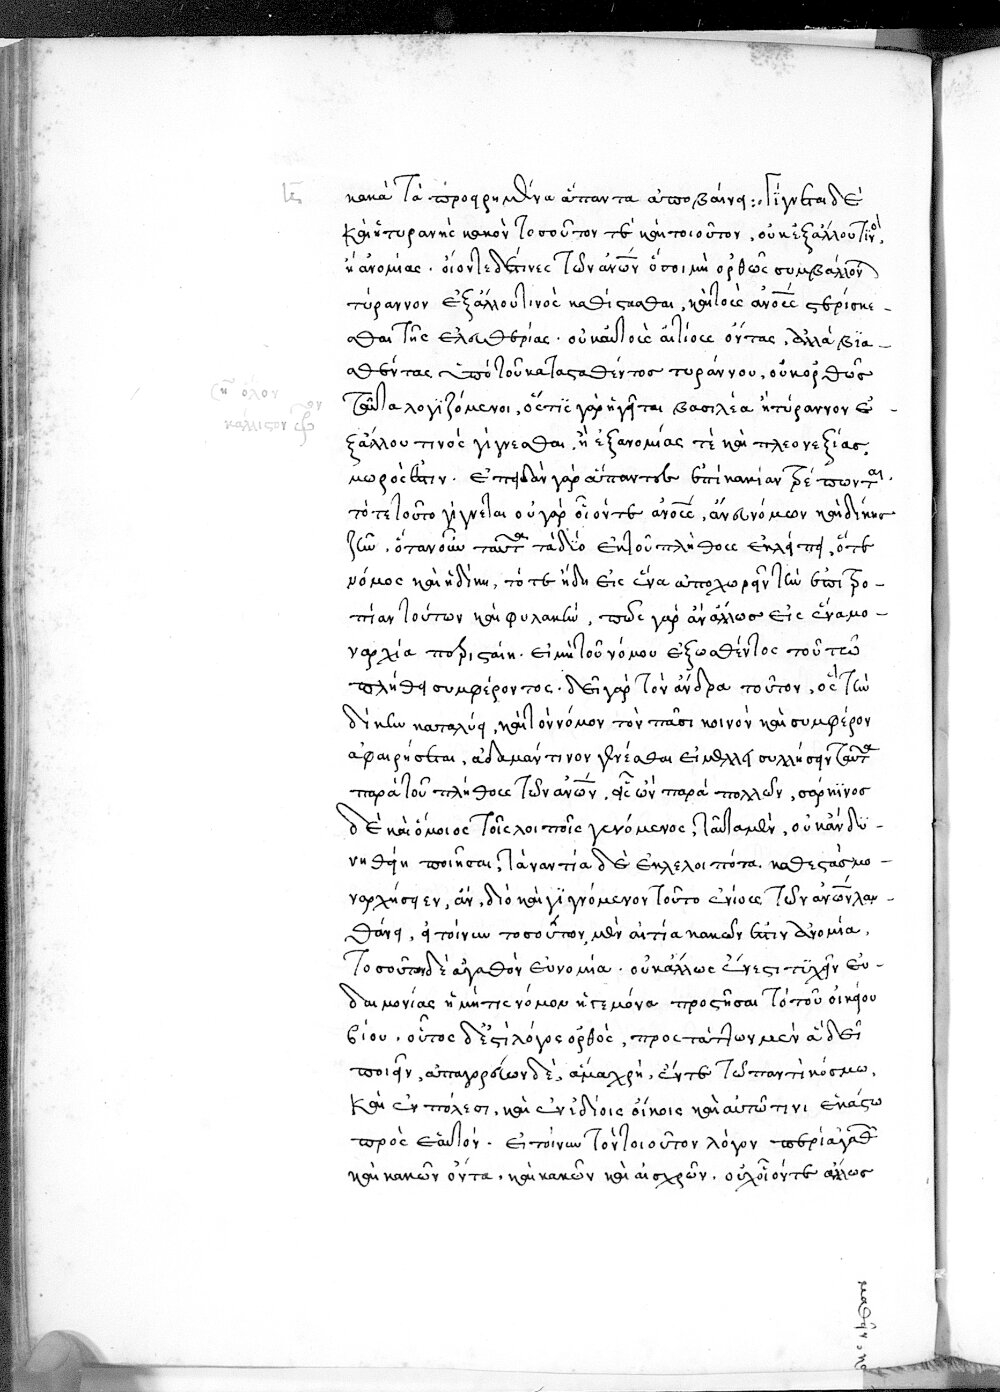 κακὰ τὰ προειρημένα ἅπαντα ἀποβαίνει :· Γίγνεται δὲ
καὶ ἡ τυραννὶς κακὸν τοσοῦτόν τε καὶ τοιοῦτον, οὐκ ἐξ ἄλλου τινὸς,
ἢ ἀνομίας. οἴονται δέ τινες τῶν ἀνων ὅσοι μὴ ὀρθῶς συμβάλλον
τύραννον ἐξ ἄλλου τινὸς καθίστασθαι, καὶ τοὺς ἀνους στερίσκε-
σθαι τῆς ἐλευθερίας. οὐκ αὐτοὺς αἰτίους ὄντας, ἀλλὰ βϊα-
σθέντας ὑπὸ τοῦ κατασταθέντος τυράννου, οὐκ ὀρθῶς
ταῦτα λογϊζόμενοι, ὅστις γὰρ ἡγεῖται βασιλέα ἢ τύραννον ἐ-
ξ ἄλλου τινὸς γίγνεσθαι, ἢ ἐξ ἀνομίας τὲ καὶ πλεονεξίας,
μωρός ἐστιν. ἐπειδὰν γὰρ ἅπαντες ἐπὶ κακίαν τράπωνται,
τότε τοῦτο γίγνεται οὐ γὰρ οἷόν τε ἀνους, ἄνευ νόμων καὶ δίκης
ζῆν, ὅταν οὖν ταῦτα τὰ δύο ἐκ τοῦ πλήθους ἐκλείπη, ὅ τε
νόμος καὶ ἡ δίκη, τότε ἤδη εἰς ἕνα ἀποχωρεῖν τὴν ἐπιτρο-
πίαν τούτων καὶ φυλακὴν, πῶς γὰρ ἂν ἄλλως εἰς ἕνα μο-
ναρχία περισταίη. εἰ μὴ τοῦ νόμου ἐξωσθέντος τοῦ τῶ
πλήθει συμφέροντος. δεῖ γὰρ τὸν ἄνδρα τοῦτον, ὃς τὴν
δίκην καταλύει, καὶ τὸν νόμον τὸν πᾶσι κοινὸν καὶ συμφέρον
ἀφαιρήσεται, ἀδαμάντινον γενέσθαι εἰ μέλλει συλήσειν ταῦτα
παρὰ τοῦ πλήθους τῶν ἀνων, εἷς ὢν παρὰ πολλῶν, σάρκϊνος
δὲ καὶ ὅμοιος τοῖς λοιποῖς γενόμενος, ταῦτα μὲν, οὐκ ἂν δϋ-
νηθείη ποιῆσαι, τἀναντία δὲ ἐκλελοιπότα. καθεστὼς μο-
ναρχήσειεν, ἂν, διὸ καὶ γϊγνόμενον τοῦτο ἐνίους τῶν ἀνων λαν-
θάνει, εἰ τοίνυν τοσούτων μὲν αἰτία κακῶν ἐστὶν ἀνομία,
τοσοῦτον δὲ ἀγαθὸν εὐνομία. οὐκ ἄλλως ἔνεστι τϋχεῖν εὐ-
δαιμονίας ἢ μή τις νόμον ἡγεμόνα προστῆσαι τὸ τοῦ οἰκείου
βίου. οὗτος δέ ἐστὶ λόγος ὀρθὸς, προστάττων μὲν ἃ δεῖ
ποιεῖν, ἀπαγορεύων δὲ, ἃ μὴ χρὴ, ἔν τε τῶ παντὶ κόσμω,
καὶ ἐν πόλεσι, καὶ ἐν ἰδίοις οἴκοις καὶ αὐτῶ τινι ἑκάστω
πρὸς ἑαυτόν. εἰ τοίνυν τὸν τοιοῦτον λόγον περὶ ἀγαθ
καὶ κακῶν ὄντα, καὶ καλῶν καὶ αἰσχρῶν, οὐχ οἷόν τε ἄλλως
μαθεῖν